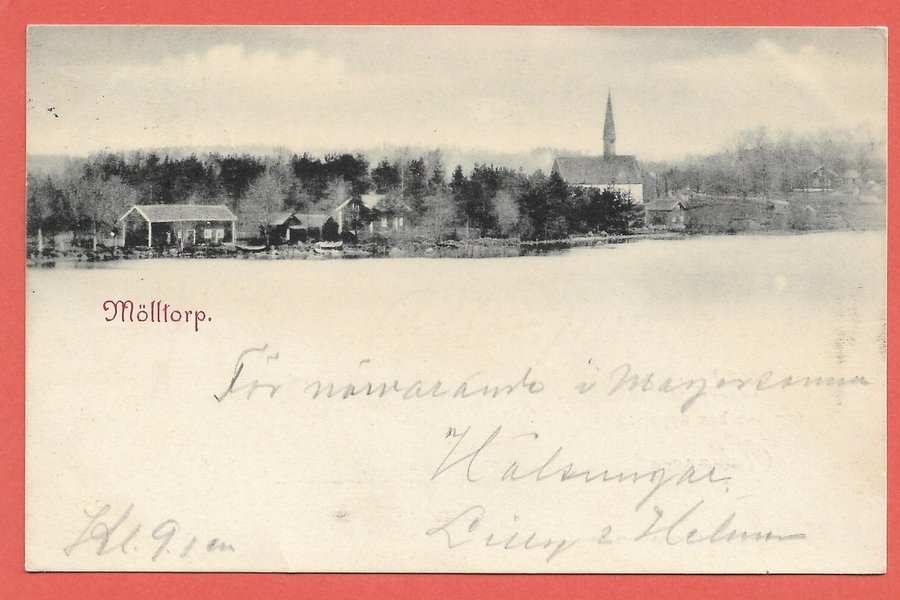 Mölltorp.
För närvarande i
Hälsningar
Kl. 9. Lilly & Helmer